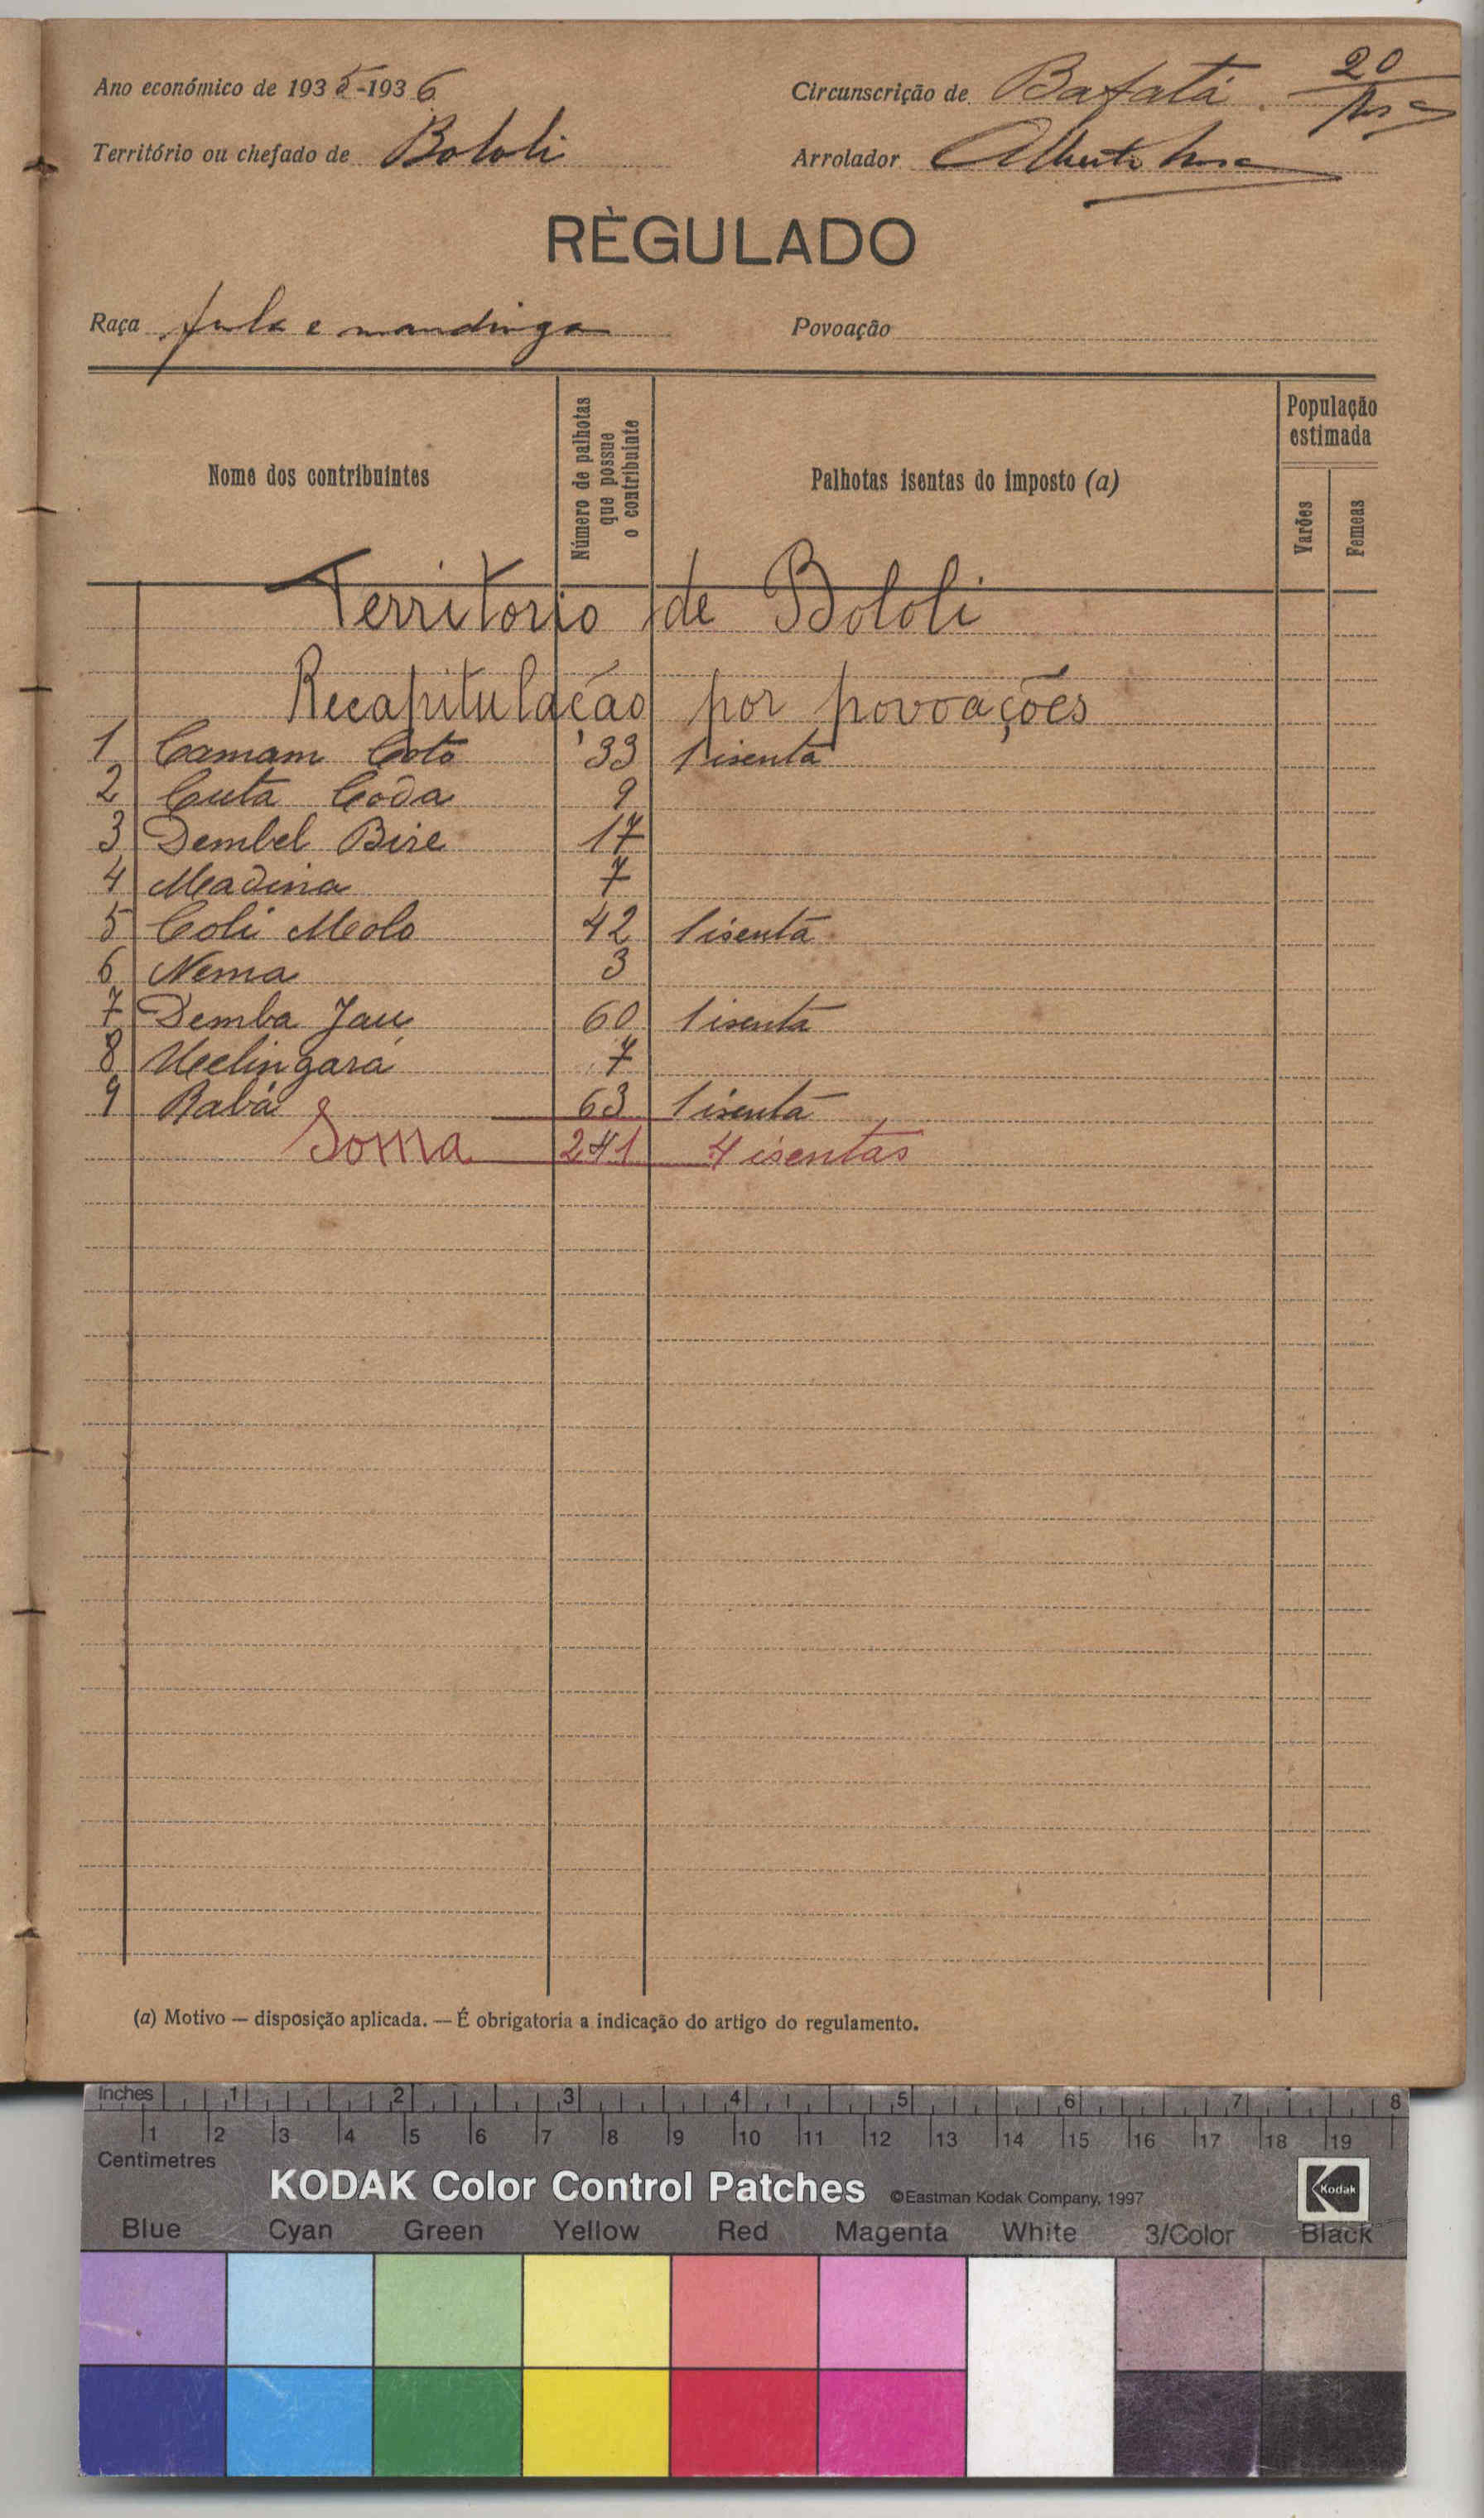 Ano económico de 1935-1936
Circunscrição de Bafatá 20
Território ou chefado de Bololi
Arrolador Alberto
RÈGULADO
Raça fula e mandinga
Povoação
Nome dos contribuintes
Número de palhotas que possue o contribuinte
Palhotas isentas do imposto (a)
População estimada
Varões
Femeas
Territorio de Bololi
Recapitulação por povoações
1 Camam Coto 33 1 isenta
2 Cuta Coda 9
3 Dembel Bire 17
4 Madina 7
5 Coli Meolo 42 1 isenta
6 Nema 3
7 Demba Jau 60 1 isenta
8 Uelingará 7
9 Babá 63 1 isenta
Soma 241 4 isentas
(a) Motivo — disposição aplicada. — É obrigatoria a indicação do artigo do regulamento.
Inches 1 2 3 4 5 6 7 8
1 2 3 4 5 6 7 8 9 10 11 12 13 14 15 16 17 18 19
Centimetres
KODAK Color Control Patches ©Eastman Kodak Company, 1997 Kodak
Blue Cyan Green Yellow Red Magenta White 3/Color Black